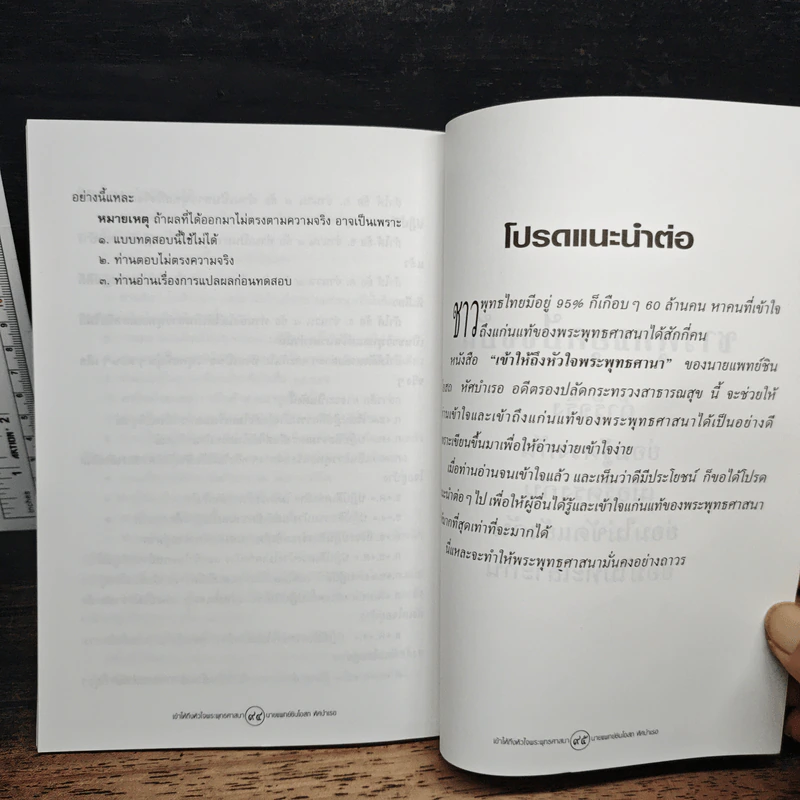 อย่างนี้แหละ
หมายเหตุ ถ้าผลที่ได้ออกมาไม่ตรงตามความจริง อาจเป็นเพราะ
๑. แบบทดสอบนี้ใช้ไม่ได้
๒. ท่านตอบไม่ตรงความจริง
๓. ท่านอ่านเรื่องการแปลผลก่อนทดสอบ
เข้าให้ถึงหัวใจพระพุทธศาสนา ๙๔ นายแพทย์ชินโอสถ หัศบำเรอ
โปรดแนะนำต่อ
ชาวพุทธไทยมีอยู่ 95% ก็เกือบๆ 60 ล้านคน หาคนที่เข้าใจ
ถึงแก่นแท้ของพระพุทธศาสนาได้สักกี่คน
หนังสือ "เข้าให้ถึงหัวใจพระพุทธศานา" ของนายแพทย์ชิน
โอสถ หัศบำเรอ อดีตรองปลัดกระทรวงสาธารณสุข นี้ จะช่วยให้
ความเข้าใจและเข้าถึงแก่นแท้ของพระพุทธศาสนาได้เป็นอย่างดี
เพราะเขียนขึ้นมาเพื่อให้อ่านง่ายเข้าใจง่าย
เมื่อท่านอ่านจนเข้าใจแล้ว และเห็นว่าดีมีประโยชน์ ก็ขอได้โปรด
แนะนำต่อๆ ไป เพื่อให้ผู้อื่นได้รู้และเข้าใจแก่นแท้ของพระพุทธศาสนา
ให้มากที่สุดเท่าที่จะมากได้
นี่แหละจะทำให้พระพุทธศาสนามั่นคงอย่างถาวร
เข้าให้ถึงหัวใจพระพุทธศาสนา ๙๕ นายแพทย์ชินโอสถ หัศบำเรอ